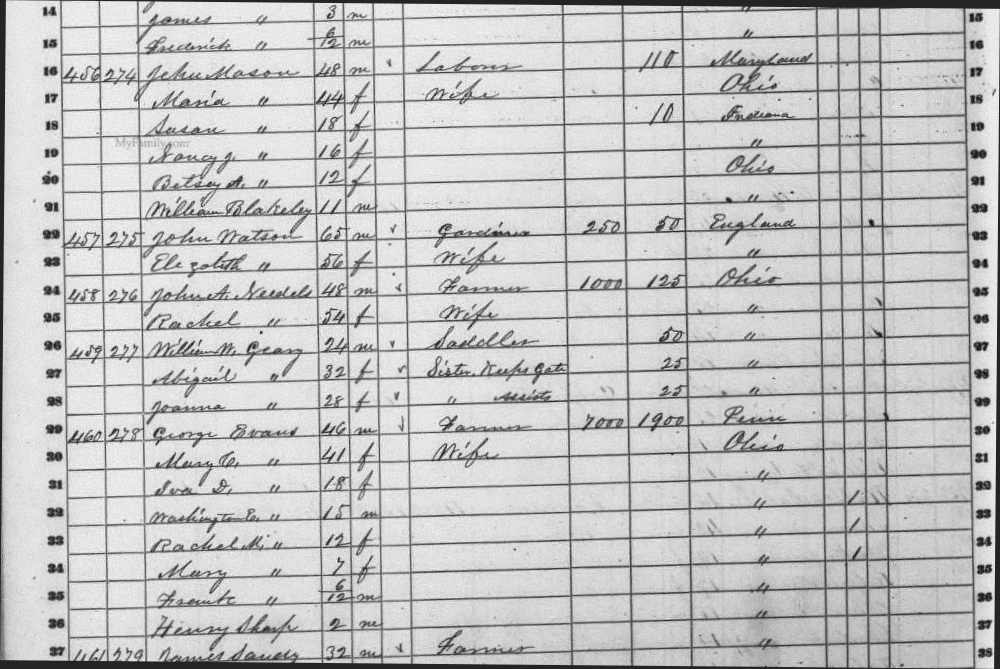 14 James " 3 m " 15
15 Frederick " 6/12 m " 16
16 456 274 John Mason 48 m Labour 110 Maryland 17
17 Maria " 44 f Wife Ohio 18
18 Susan " 18 f 10 Indiana 19
MyFamily.com
19 Nancy J. " 16 f " 20
20 Betsey A. " 12 f Ohio 21
21 William Blakeley 11 m " 22
22 457 275 John Watson 65 m Gardiner 250 50 England 23
23 Elizabeth " 56 f Wife " 24
24 458 276 John A. Needels 48 m Farmer 1000 125 Ohio 25
25 Rachel " 54 f Wife " 26
26 459 277 William W. Geary 24 m Saddler 50 " 27
27 Abigail " 32 f Sister. Keeps Gate 25 " 28
28 Joanna " 28 f " Assists 25 " 29
29 460 278 George Evans 46 m Farmer 7000 1900 Penn 30
30 Mary C. " 41 f Wife Ohio 31
31 Iva D. " 18 f " 32
32 Washington E. " 15 m " 1 33
33 Rachel M. " 12 f " 1 34
34 Mary " 7 f " 1 35
35 Frank " 6/12 m " 36
36 Henry Sharp 2 m " 37
37 461 279 James Sandy 32 m Farmer " 38